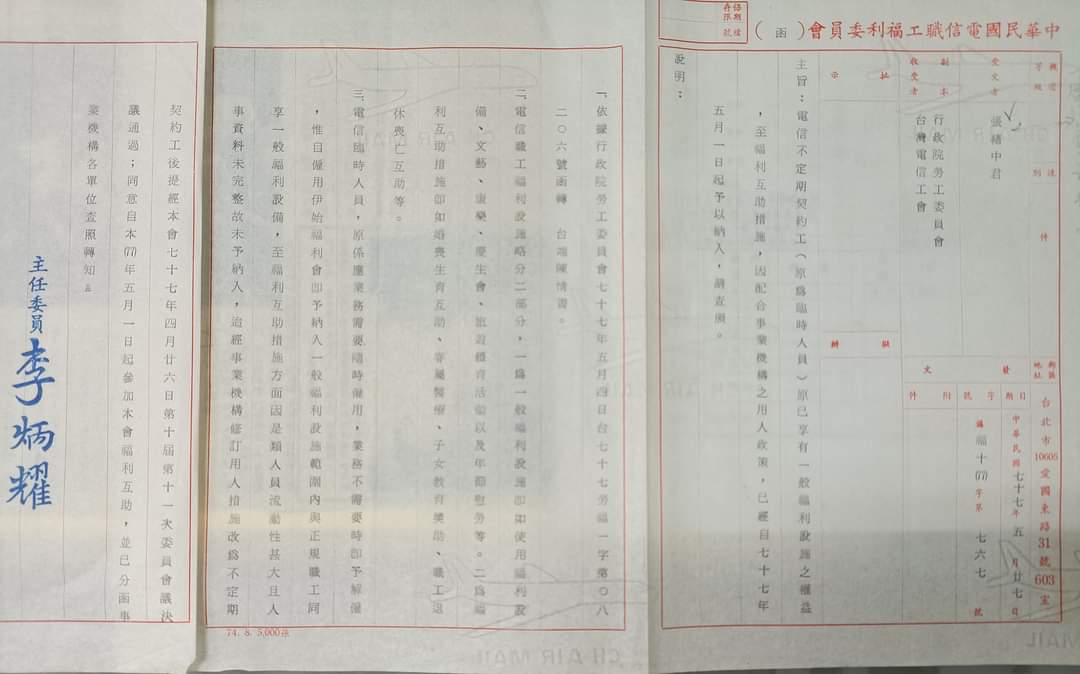 中華民國電信職工福利委員會（函）
保存期限
檔號
機密等級
速別
郵區地址
台北市10605愛國東路31號603室
受文者
張緒中君
件
副本收受者
行政院勞工委員會
台灣電信工會
發文
日期
中華民國七十七年五月廿七日
字號
福十(77)字第七六七號
附件
批示
擬辦
主旨：電信不定期契約工（原為臨時人員）原已享有一般福利設施之權益
，至福利互助措施，因配合事業機構之用人政策，已經自七十七年
五月一日起予以納入，請查照。
說明：
一、依據行政院勞工委員會七十七年五月四日台七十七勞福一字第〇八
二〇六號函轉　台端陳情書。
二、電信職工福利設施略分二部分，一為一般福利設施即如使用福利設
備、文藝、康樂、慶生會、旅遊體育活動以及年節慰勞等。二為福
利互助措施即如婚喪生育互助、眷屬醫療、子女教育獎助、職工退
休喪亡互助等。
三、電信臨時人員，原係應業務需要隨時僱用，業務不需要時即予解僱
，惟自僱用伊始福利會即予納入一般福利設施範圍內與正規職工同
享一般福利設備，至福利互助措施方面因是類人員流動性甚大且人
事資料未完整故未予納入，迨經事業機構修訂用人措施改為不定期
契約工後提經本會七十七年四月廿六日第十屆第十一次委員會議決
議通過；同意自本(77)年五月一日起參加本會福利互助，並已分函事
業機構各單位查照轉知。
主任委員 李炳耀
74. 8. 5,000張
CH AIR MAIL